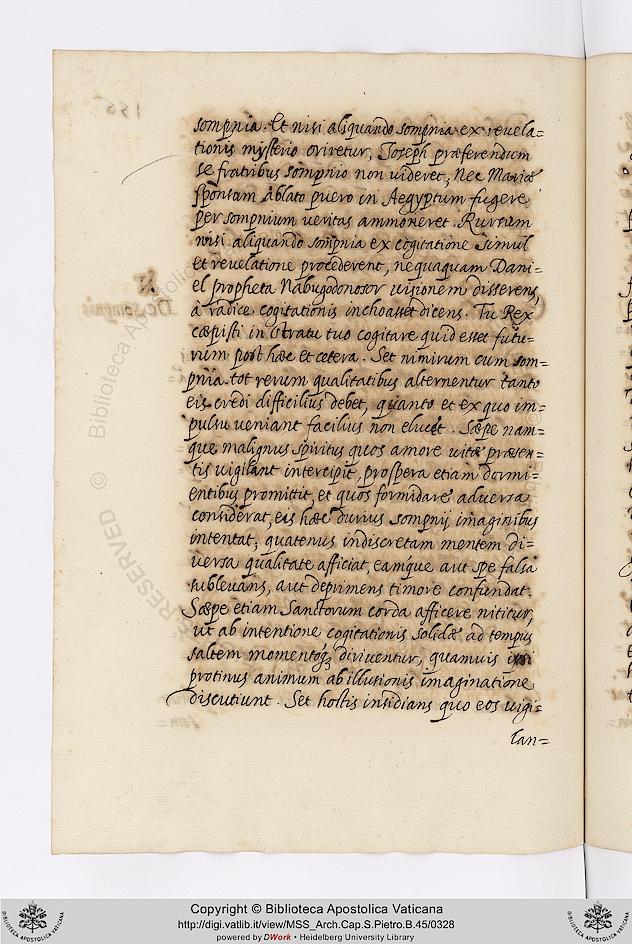 sompnia. Et nisi aliquando sompnia ex revela=
tionis mysterio oriretur, Joseph præferendum
se fratribus sompnio non videret, Nec Mariæ
sponsam ablato puero in Aegyptum fugere
per sompnium veritas ammoneret. Rursum
nisi aliquando sompnia ex cogitatione simul
et revelatione procederent, nequaquam Dani-
el propheta Nabugodonosor visionem disserens,
à radice cogitationis inchoasset dicens. Tu Rex
cæpisti in stratu tuo cogitare quid esset futu-
rum post hæc et cetera. Set nimirum cum som=
pnia tot rerum qualitatibus alternentur tanto
eis credi difficilius debet, quanto et ex quo im=
pulsu veniant facilius non elucet. Sæpe nam=
que malignus spiritus quos amore vitæ præsen=
tis vigilant intercipit, prospera etiam dormi-
entibus promittit, et quos formidare adversa
considerat, eis hæc durius sompnij imaginibus
intentat, quatenus indiscretam mentem di-
versa qualitate afficiat, eamque aut spe falsa
sublevans, aut deprimens timore confundat.
Sæpe etiam Sanctorum corda afficere nititur,
ut ab intentione cogitationis solidæ ad tempus
saltem momentoq; diriventur, quamuis
protinus animum ab illusionis imaginatione
discutiunt. Set hostis insidians quo eos vigi=
lan=
© Biblioteca Apostolica
RESERVED ©
Copyright © Biblioteca Apostolica Vaticana
http://digi.vatlib.it/view/MSS_Arch.Cap.S.Pietro.B.45/0328
powered by DWork • Heidelberg University Library